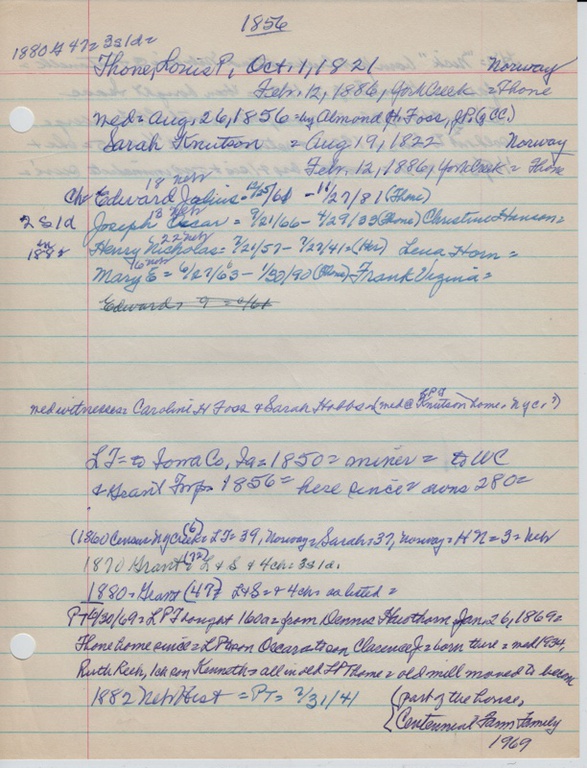 1856
1880 G 47 = 3s1d =
Thone, Louis P, Oct, 1, 1821 Norway
Feb, 12, 1886, York Creek = Thone
med = Aug, 26, 1856 = by Almond H. Foss, J.P. (WCC)
Sarah Knutson = Aug 19, 1822 Norway
Feb, 12, 1886, York Creek = Thone
18 neb
Ch = Edward Julius = 12/25/61 - 11/27/81 (Thone)
13 neb
2 S 1 d Joseph Oscar = 3/21/66 - 4/29/33 (Thone) Christine Hanson =
in 1882
22 neb
Henry Nicholas = 7/21/57 - 7/27/41 = (Her) Lena Horn =
16 neb
Mary E = 6/27/63 - 1/30/90 (Thone) Frank Virginia =
Edward, 9 = 6/61
med witnesses = Caroline H Foss & Sarah Hobbs = (med @ Knutson home, N y c, ?)
LT = to Iowa Co, Ia = 1850 = miner = to WC
& Grant Twp 1856 = here since = owns 280 =
(1860 Census NyCreek (6) = LT = 39, Norway = Sarah = 37, Norway = H N = 3 = Neb
1870 Grant (72) = L & S & 4 ch = 3s1d,
1880 = Grant (47) L & S = + 4 ch = as listed =
PT 9/30/69 = L P T bought 160a = from Dennis Hawthorn, Jan, 26, 1869 =
Thone home since = L P to son Oscar = to son Clarence J = born there = med 1934,
Ruth Keck, 1 ch son Kenneth = all in old LP Thone = old mill moved to become
1882 Neb Hist = PT = 7/31/41 (part of the house,
(Centennial Farm Family
1969